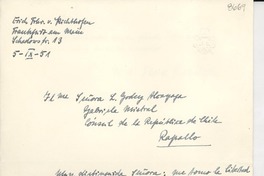 8661
Erich Frhr. v. Richthofen
Frankfurt am Main
13
5-IX-51
Señora L. Godoy Alcayaga
Gabriela Mistral
Cónsul de la República de Chile
Rapallo
Muy distinguida Señora: me tomo la libertad